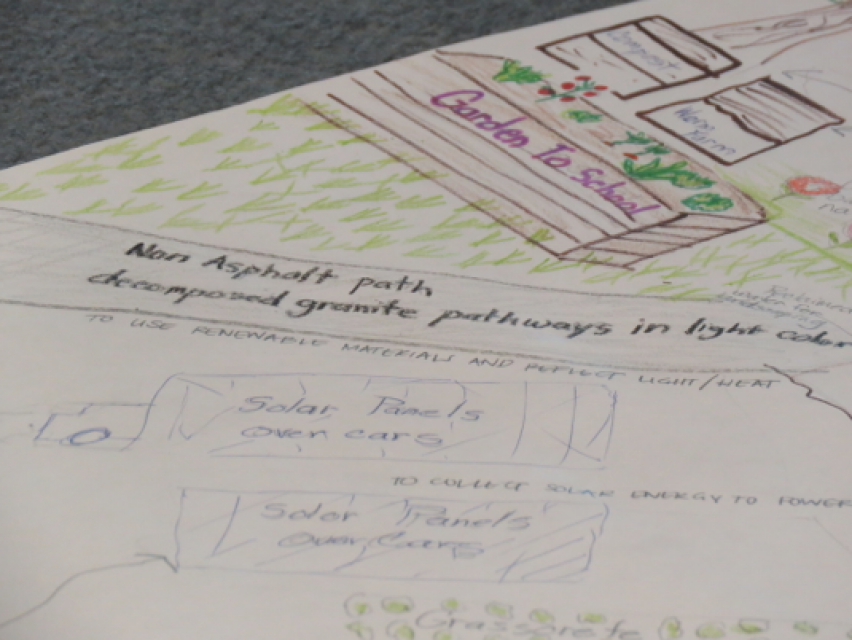 Compost
Worm Farm
Garden To School
Non Asphalt path
decomposed granite pathways in light color
TO USE RENEWABLE MATERIALS AND REFLECT LIGHT/HEAT
Solar Panels
over cars
TO COLLECT SOLAR ENERGY TO POWER
Solar Panels
Over Cars
Grasscrete